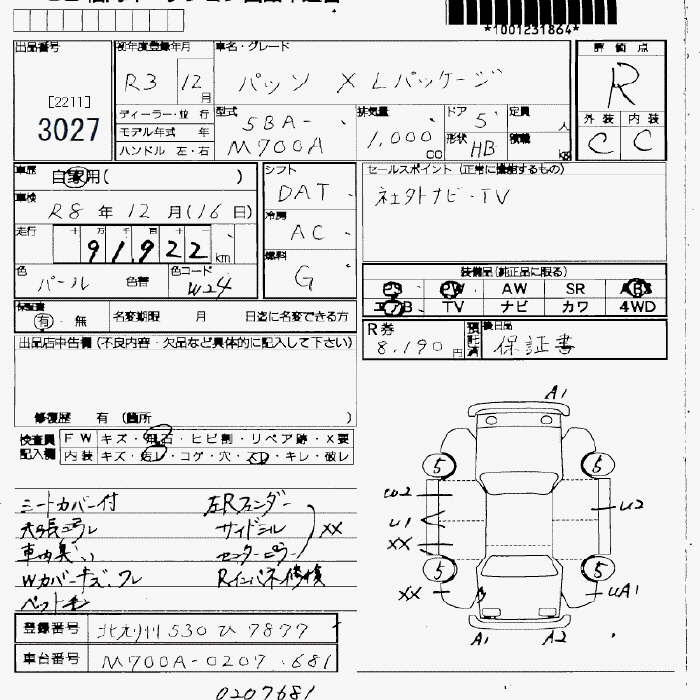 *1001231864*
出品番号 初年度登録年月 車名・グレード 評価点
[2211]
3027
R3 12月 パッソ X Lパッケージ R
ディーラー・並行
モデル年式 年
ハンドル 左・右
型式 5BA-
M700A
排気量 1,000 cc
ドア 5 定員 人
形状 HB 積載 kg
外装 内装
C C
車歴 自家用( )
車検 R8 年 12 月(16 日)
走行 十 万 千 百 十 一
91,922 km
色 パール 色替 色コード W24
シフト DAT
冷房 AC
燃料 G
セールスポイント(正常に機能するもの)
社外ナビ・TV
装備品(純正品に限る)
PS PW AW SR ABS
エアB TV ナビ カワ 4WD
保証書 有・無 名変期限 月 日迄に名変できる方
R券 8,190円 預託済 後日品 保証書
出品店申告欄(不良内容・欠品など具体的に記入して下さい)
修復歴 有(箇所 )
検査員記入欄 FW キズ・飛石・ヒビ割・リペア跡・X要
内装 キズ・汚レ・コゲ・穴・スレ・キレ・破レ
シートカバー付 左Rフェンダー
サイドシル XX
車内臭い センターピラー
Wカバーキズ、ワレ Rインパネ修検
A1
5 5
W2 U2
U1
XX
5 5
XX UA1
A1 A2
登録番号 北九州 530 ひ 7877
車台番号 M700A-0207681
0207681